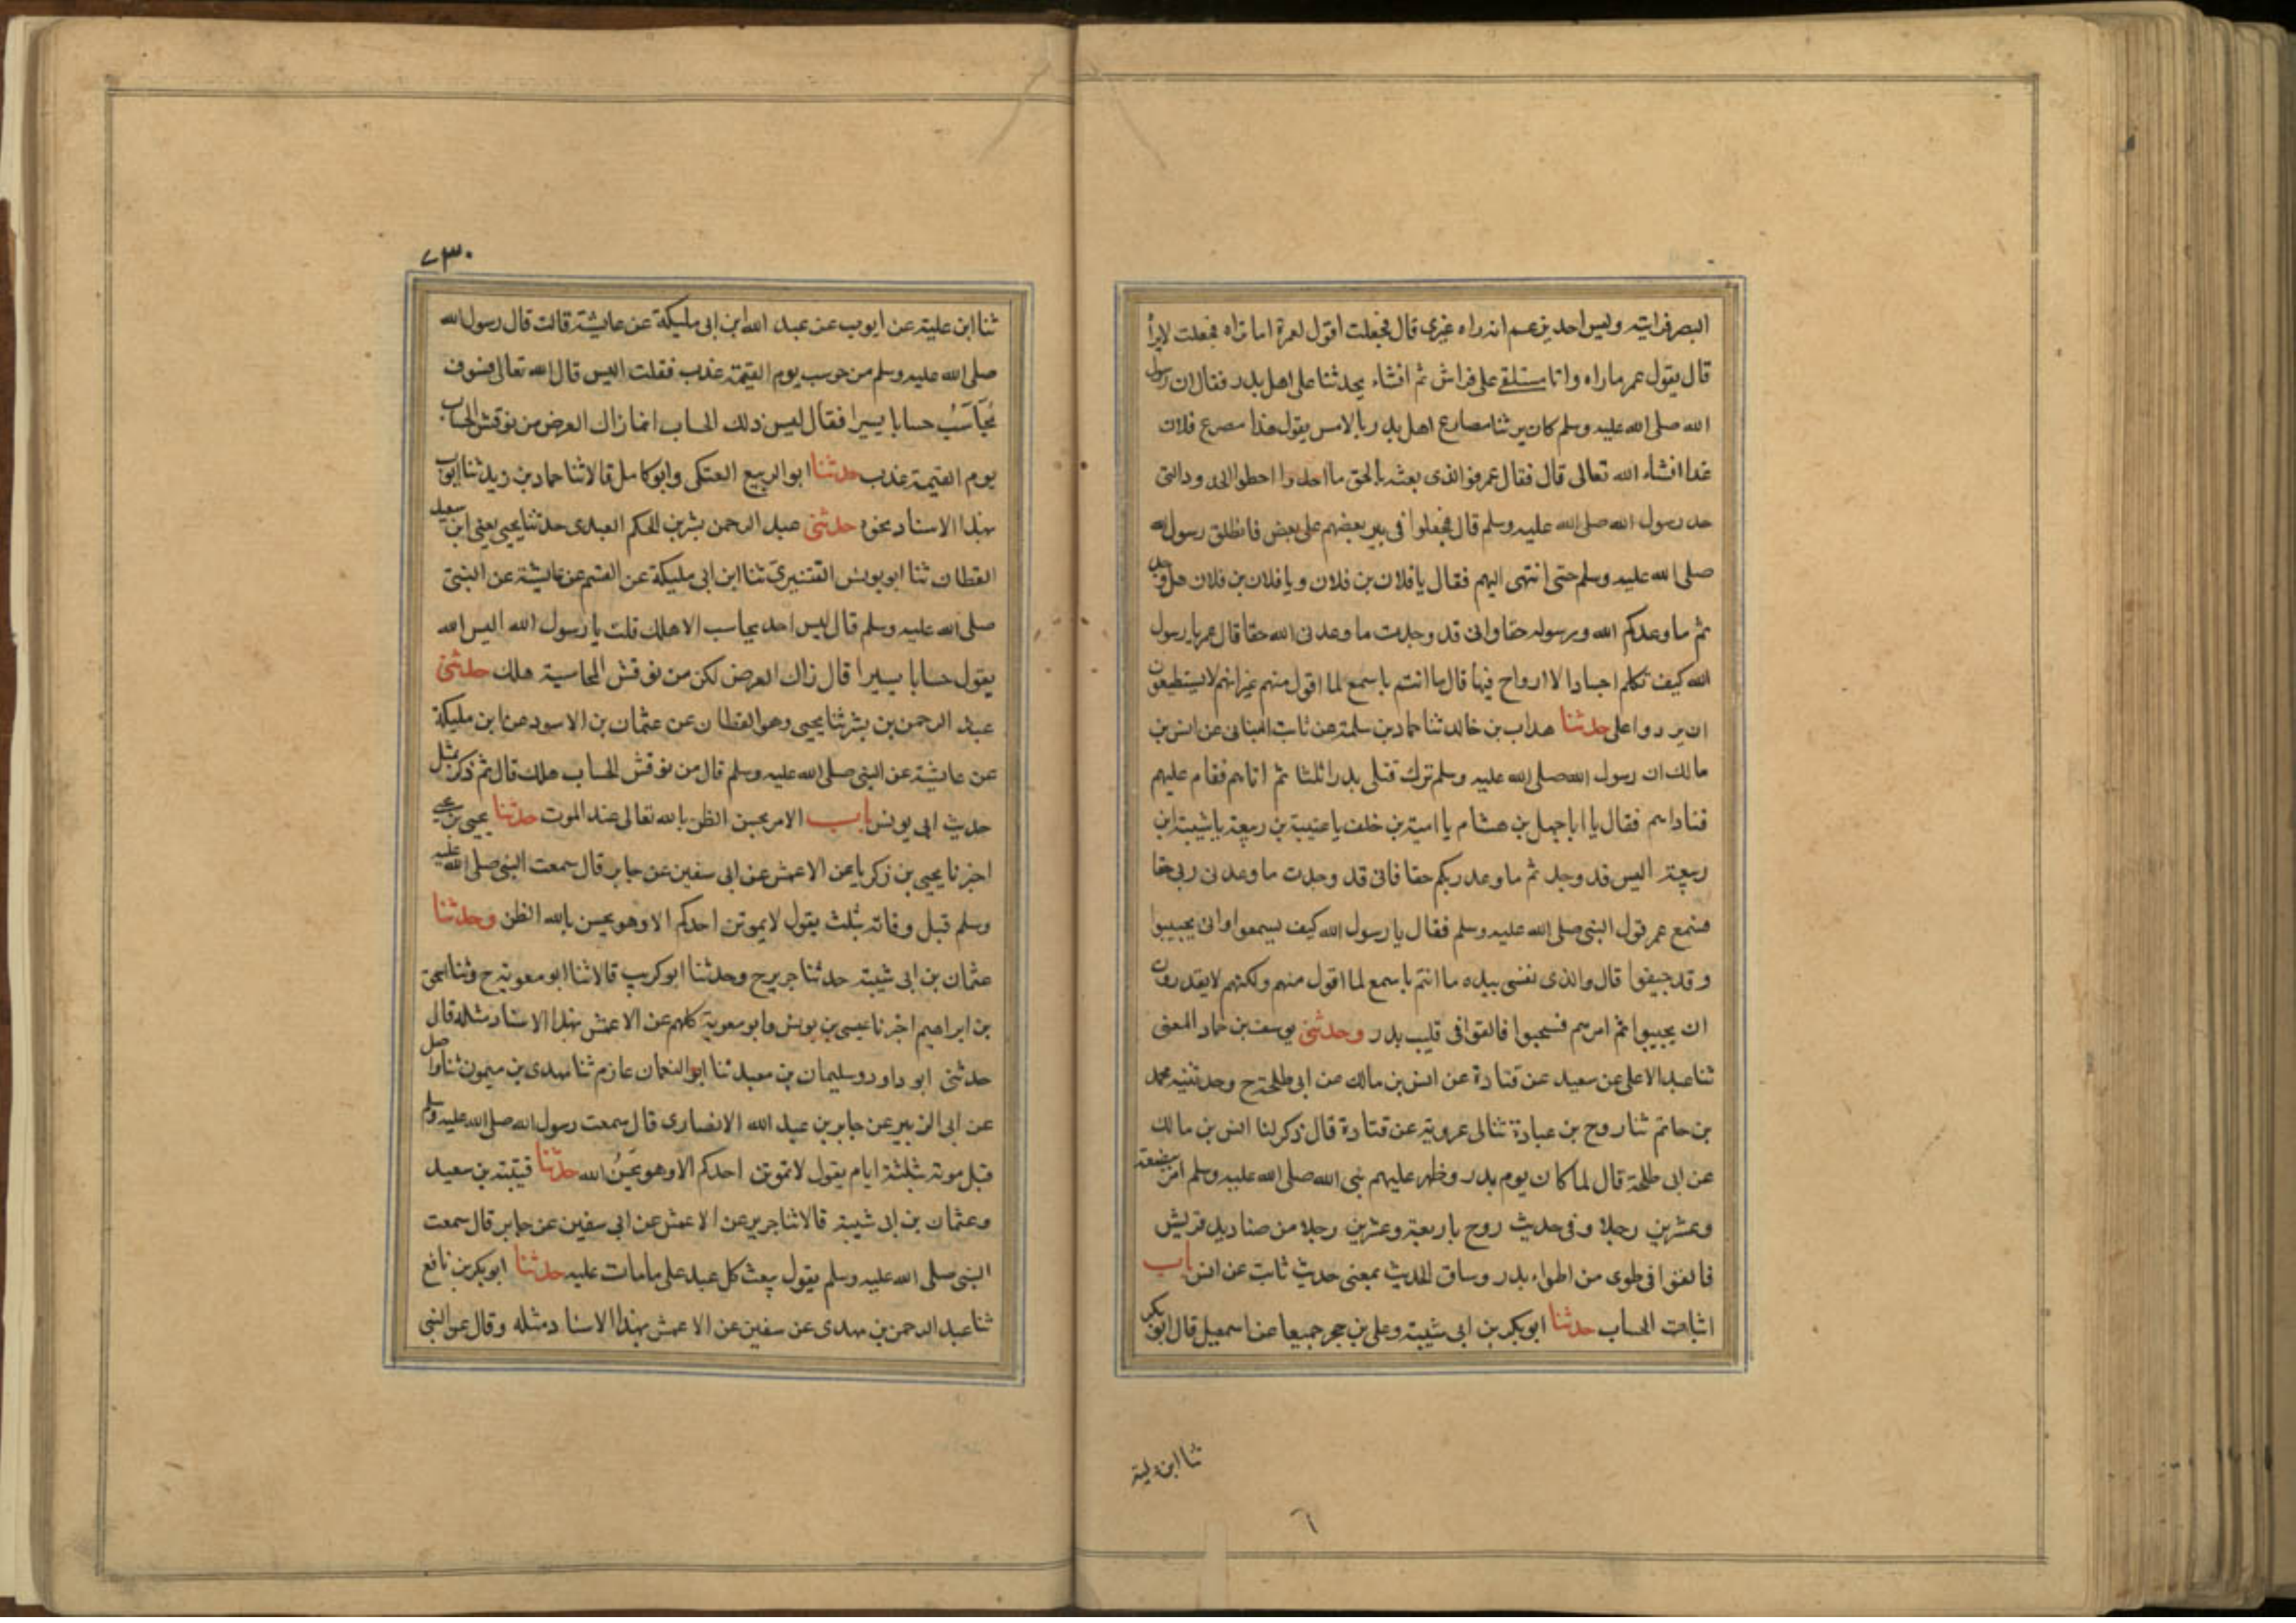 البصر فرايته وليس احد يزعم انه راه غيرى قال فجعلت اقول لعمر اما تراه فجعل لا يراه
قال يقول عمر ماراه وانا مستلقى على فراش ثم انشاء يحدثنا على اهل بدر فقال ان رسول
الله صلى الله عليه وسلم كان يرينا مصارع اهل بدر بالامس يقول هذا مصرع فلان
غدا انشاء الله تعالى قال فقال عمر فوالذى بعثه بالحق ما اخطوا الحدود التى
حد رسول الله صلى الله عليه وسلم قال فجعلوا فى بير بعضهم على بعض فانطلق رسول الله
صلى الله عليه وسلم حتى انتهى اليهم فقال يا فلان بن فلان ويا فلان بن فلان هل وجد
تم ما وعدكم الله ورسوله حقا وانى قد وجدت ما وعدنى الله حقا قال عمر يا رسول
الله كيف تكلم اجسادا لا ارواح فيها قال ما انتم باسمع لما اقول منهم غير انهم لا يستطيعون
ان يردوا على حدثنا هداب بن خالد ثنا حماد بن سلمة عن ثابت البنانى عن انس بن
مالك ان رسول الله صلى الله عليه وسلم ترك قتلى بدر ثلثا ثم اتاهم فقام عليهم
فناداهم فقال يا ابا جهل بن هشام يا امية بن خلف يا عتيبة بن ربيعة يا شيبة ابن
ربيعة اليس قد وجد تم ما وعد ربكم حقا فانى قد وجدت ما وعدنى ربى حقا
فسمع عمر قول النبى صلى الله عليه وسلم فقال يا رسول الله كيف يسمعوا وانى يجيبوا
وقد جيفوا قال والذى نفسى بيده ما انتم باسمع لما اقول منهم ولكنهم لا يقدرون
ان يجيبوا ثم امرهم فسحبوا فالقوا فى قليب بدر وحدثنى يوسف بن حماد المعنى
ثنا عبد الاعلى عن سعيد عن قتادة عن انس بن مالك عن ابى طلحة ح وحدثنيه محمد
بن حاتم ثنا روح بن عبادة ثنا عروبة عن قتادة قال ذكر لنا انس بن مالك
عن ابى طلحة قال لما كان يوم بدر وظهر عليهم نبى الله صلى الله عليه وسلم امر ببضعة
وعشرين رجلا وفى حديث روح باربعة وعشرين رجلا من صناديد قريش
فالقوا فى طوى من اطواء بدر وساق الحديث بمعنى حديث ثابت عن انس باب
اثبات الحساب حدثنا ابو بكر بن ابى شيبة وعلى بن حجر جميعا عن اسمعيل قال ابو بكر
ثنا ابن علية
٦
٧٣٠
ثنا ابن علية عن ايوب عن عبد الله ابن ابى مليكة عن عايشة قالت قال رسول الله
صلى الله عليه وسلم من حوسب يوم القيمة عذب فقلت اليس قال الله تعالى فسوف
يُحَاسَبُ حسابا يسيرا فقال ليس ذلك الحساب انما ذاك العرض من نوقش الحساب
يوم القيمة عذب حدثنا ابو الربيع العتكى وابو كامل قالا ثنا حماد بن زيد ثنا ايوب
بهذا الاسناد نحوه حدثنى عبد الرحمن بشر بن الحكم العبدى حدثنا يحيى يعنى ابن سعيد
القطان ثنا ابو يونس القشيرى ثنا ابن ابى مليكة عن القسم عن عايشة عن النبى
صلى الله عليه وسلم قال ليس احد يحاسب الا هلك قلت يا رسول الله اليس الله
يقول حسابا يسيرا قال ذاك العرض لكن من نوقش المحاسبة هلك حدثنى
عبد الرحمن بن بشر ثنا يحيى وهو القطان عن عثمان بن الاسود عن ابن مليكة
عن عايشة عن النبى صلى الله عليه وسلم قال من نوقش الحساب هلك قال ثم ذكر بمثل
حديث ابى يونس باب الامر بحسن الظن بالله تعالى عند الموت حدثنا يحيى بن يحيى
اخبرنا يحيى بن زكريا عن الاعمش عن ابى سفين عن جابر قال سمعت النبى صلى الله عليه
وسلم قبل وفاته بثلث يقول لا يموتن احدكم الا وهو يحسن بالله الظن وحدثنا
عثمان بن ابى شيبة حدثنا جرير ح وحدثنا ابو كريب قالا ثنا ابو معوية ح وثنا اسحق
بن ابراهيم اخبرنا عيسى بن يونس وابو معوية كلهم عن الاعمش بهذا الاسناد مثله قال
حدثنى ابو داود سليمان بن معبد ثنا ابو النعمان عازم ثنا مهدى بن ميمون ثنا واصل
عن ابى الزبير عن جابر بن عبد الله الانصارى قال سمعت رسول الله صلى الله عليه وسلم
قبل موته بثلثة ايام يقول لا تموتن احدكم الا وهو يحسنُ الله حدثنا قتيبة بن سعيد
وعثمان بن ابى شيبة قالا ثنا جرير عن الاعمش عن ابى سفين عن جابر قال سمعت
النبى صلى الله عليه وسلم يقول يبعث كل عبد على مامات عليه حدثنا ابو بكر بن نافع
ثنا عبد الرحمن بن مهدى عن سفين عن الاعمش بهذا الاسناد مثله وقال عن النبى